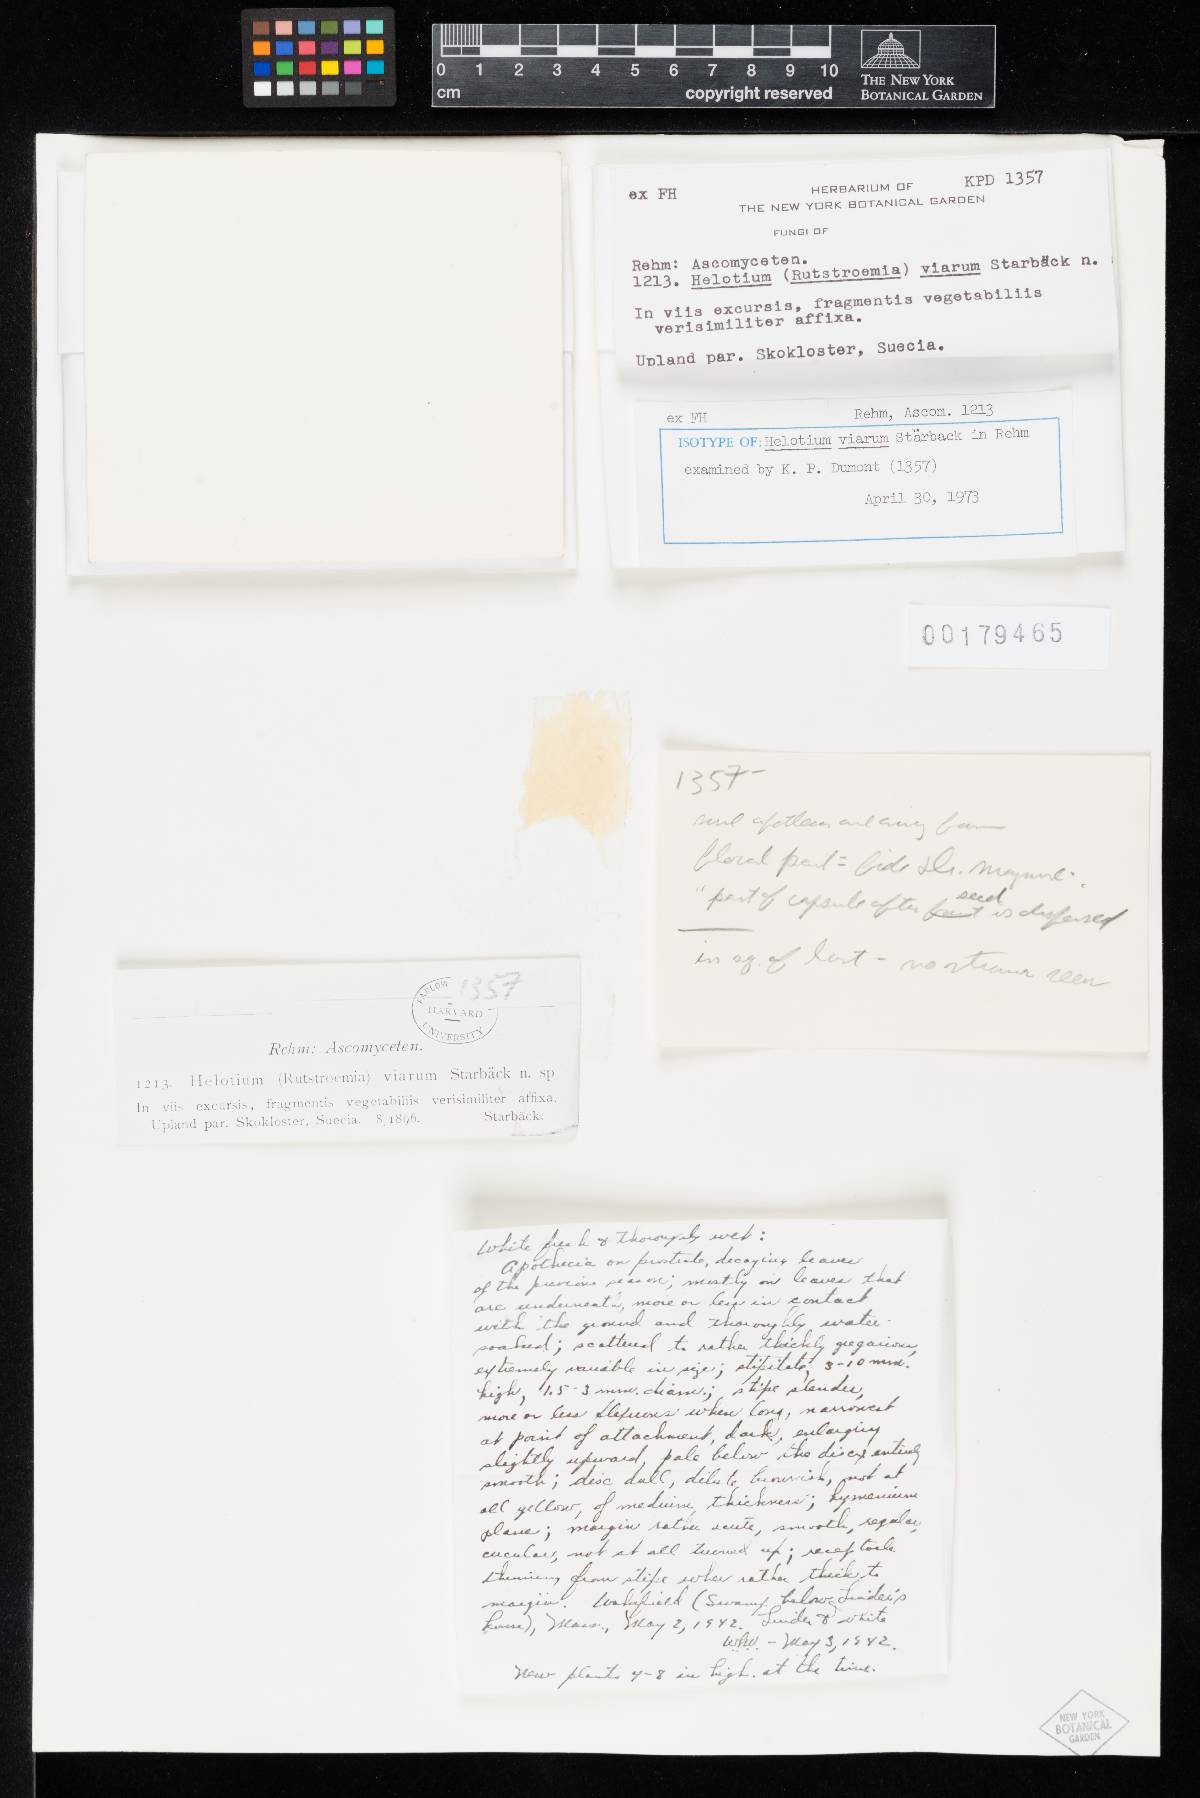 0 1 2 3 4 5 6 7 8 9 10
cm copyright reserved
THE NEW YORK
BOTANICAL GARDEN
ex FH
KPD 1357
HERBARIUM OF
THE NEW YORK BOTANICAL GARDEN
FUNGI OF
Rehm: Ascomyceten.
1213. Helotium (Rutstroemia) viarum Starbäck n.
In viis excursis, fragmentis vegetabiliis
verisimiliter affixa.
Upland par. Skokloster, Suecia.
ex FH Rehm, Ascom. 1213
ISOTYPE OF: Helotium viarum Stärback in Rehm
examined by K. P. Dumont (1357)
April 30, 1973
00179465
1357-
floral part =
"part of capsule after seed is dispersed
in sq. of
FARLOW
1357
HARVARD
UNIVERSITY
Rehm: Ascomyceten.
1213. Helotium (Rutstroemia) viarum Starbäck n. sp
In viis excursis, fragmentis vegetabiliis verisimiliter affixa.
Upland par. Skokloster, Suecia. 8/1896. Starbäck.
White fresh & thoroughly wet:
Apothecia on prostrate, decaying leaves
of the previous season; mostly on leaves that
are underneath, more or less in contact
with the ground and thoroughly water-
soaked; scattered to rather thickly gregarious,
extremely variable in size; stipitate, 3-10 mm.
high, 1.5-3 mm. diam.; stipe slender,
more or less flexuous when long, narrowest
at point of attachment, dark, enlarging
slightly upward, pale below the disc, entirely
smooth; disc dull, dilute brownish, not at
all yellow, of medium thickness; hymenium
plane; margin rather acute, smooth, regular,
circular, not at all turned up; receptacle
thinning from stipe when rather thick to
margin. Wakefield (Swamp below Linder's
house), Mass., May 2, 1942. Linder & White
WLW. - May 3, 1942.
New plants 4-8 in high. at the time.
NEW YORK
BOTANICAL
GARDEN